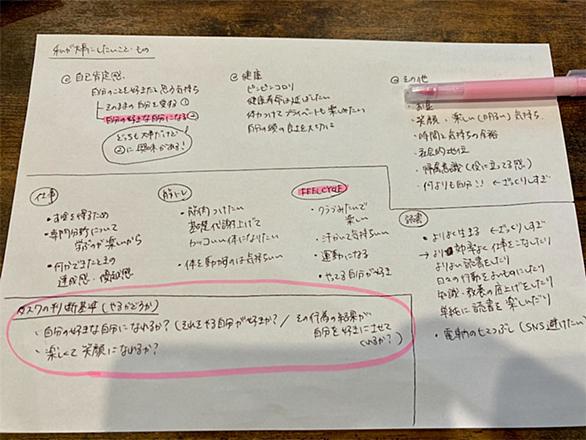 私が大事にしたいこと・もの
◎ 自己肯定感
自分のことを好きだと思う気持ち
そのままの自分を愛する ①
自分の好きな自分になる ②
どっちも大事だけど
②に興味がある!
◎ 健康
ピンピンコロリ
健康寿命は延ばしたい
体力つけてプライベートも楽しみたい
◎ その他
・お金
・笑顔・楽しい
気持ち
・時間と気持ちの余裕
・社会的地位
・帰属意識(役に立ってる感)
・何よりも自分!! ←ざっくりしすぎ
仕事
・お金を得るため
・専門分野について
学ぶのが楽しいから
・何かできたときの
達成感・優越感
筋トレ
・筋肉つけたい
基礎代謝上げて
カッコいい体になりたい
・体を動かすのは気持ちいい
FEELCYCLE
・クラブみたいで
楽しい
・汗かいて気持ちいい
・運動になる
・やってる自分が好き
読書
・よりよく生きる ←ざっくりしすぎ
→より効率よく仕事をこなしたり
よりよい読書をしたり
日々の行動をよいものにしたり
知識・教養の底上げをしたり
単純に読書を楽しんだり
・電車内のヒマつぶし(SNS避けたい)
タスクの判断基準(やるかどうか)
・自分の好きな自分になれるか?(それをやる自分が好きか?/その行為の結果が
自分を好きにさせて
くれるか?)
・楽しくて笑顔になれるか?